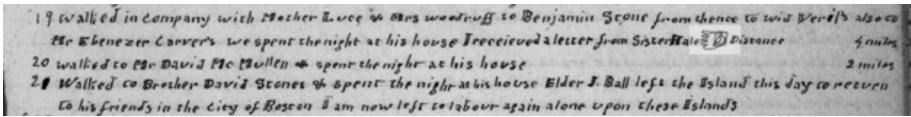 19 walked in Company with Mother Luce & Mrs woodruff to Benjamin Stone from thence to wid Verils also to
Mr Ebenezer Carver's we spent the night at his house I receieved a letter from Sister Hale Distance 4 miles
20 walked to Mr David Mc Mullen & spent the night at his house 2 miles
21 Walked to Brother David Stones & spent the night at his house Elder J. Ball left the Island this day to return
to his friends in the City of Boston I am now left to labour again alone upon these Islands